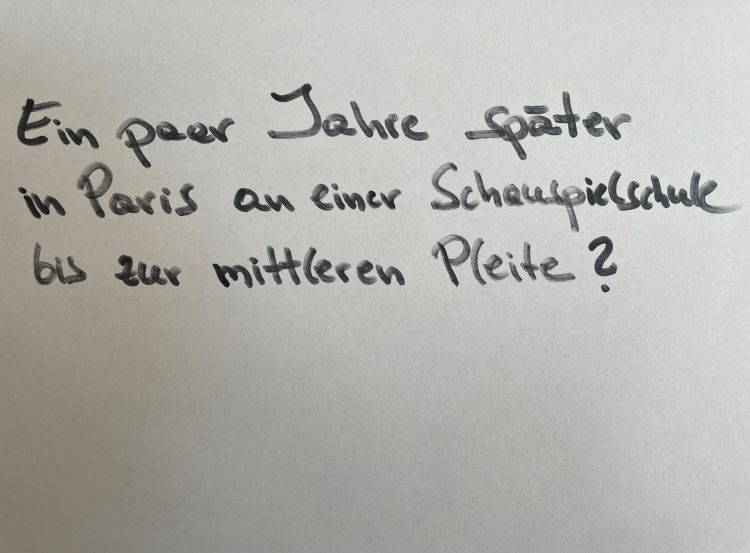 Ein paar Jahre später
in Paris an einer Schauspielschule
bis zur mittleren Pleite?